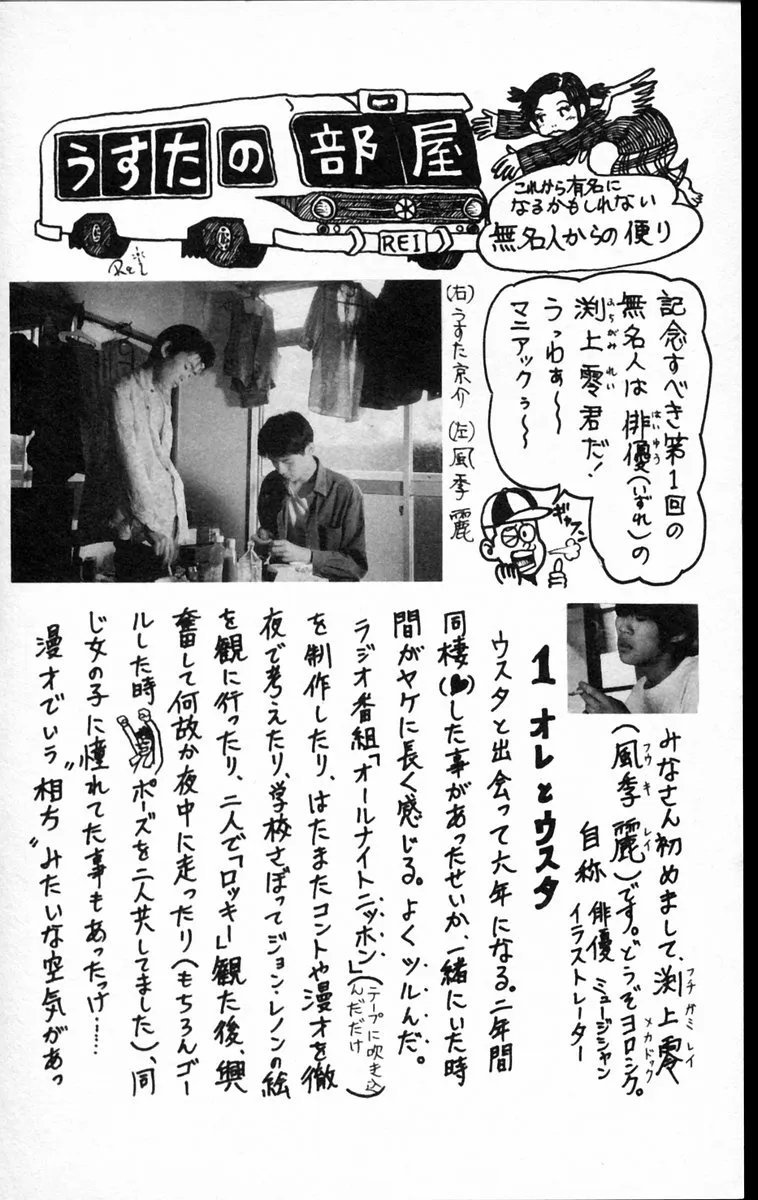 うすたの部屋
REI
Rei
これから有名に
なるかもしれない
無名人からの便り
記念すべき第1回の
無名人は俳優(いずれ)の
はいゆう
渕上零君だ!
ふちがみ れい
うっわぁ〜〜
マニアックぅ〜〜
ギャフン
(右)うすた京介 (左)風季麗
みなさん初めまして、渕上零
フチガミレイ
(風季麗)です。どうぞヨロシク。
フウキレイ
メカドック
自称 俳優 ミュージシャン
イラストレーター
1 オレとウスタ
ウスタと出会って六年になる。二年間
同棲(♥)した事があったせいか、一緒にいた時
間がヤケに長く感じる。よくツルんだ。
ラジオ番組「オールナイトニッホン」(テープに吹き込
んだだけ)
を制作したり、はたまたコントや漫才を徹
夜で考えたり、学校さぼってジョン・レノンの絵
を観に行ったり、二人で「ロッキー」観た後、興
奮して何故か夜中に走ったり(もちろんゴー
ルした時ポーズを二人共してました)、同
じ女の子に憧れてた事もあったっけ……
漫才でいう〝相方〟みたいな空気があっ